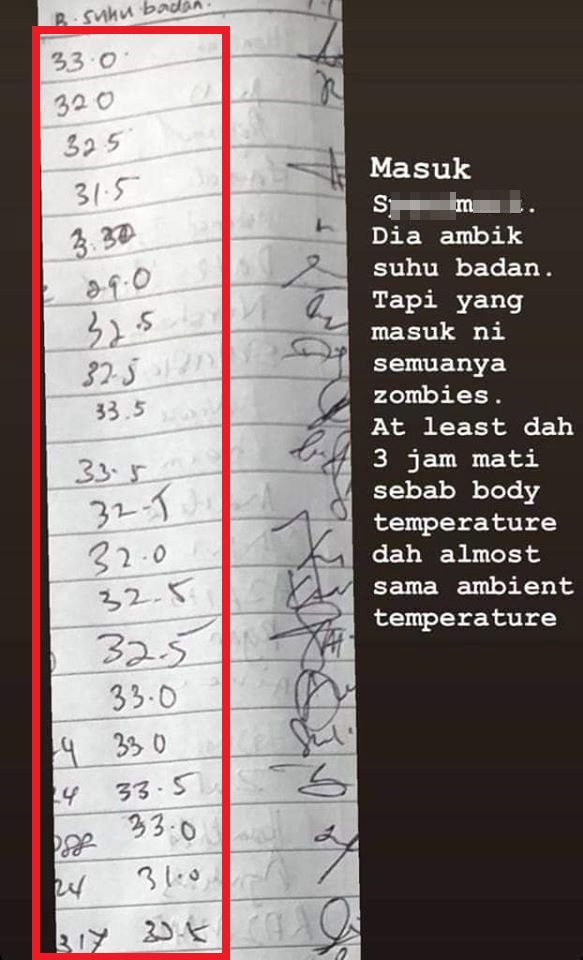 B. suhu badan.
33.0
320
32.5
31.5
3.30
29.0
32.5
32.5
33.5
33.5
32-5
32.0
32.5
32.5
33.0
4 330
24 33.5
088 33.0
24 31.0
317
Masuk
Dia ambik
suhu badan.
Tapi yang
masuk ni
semuanya
zombies.
At least dah
3 jam mati
sebab body
temperature
dah almost
sama ambient
temperature